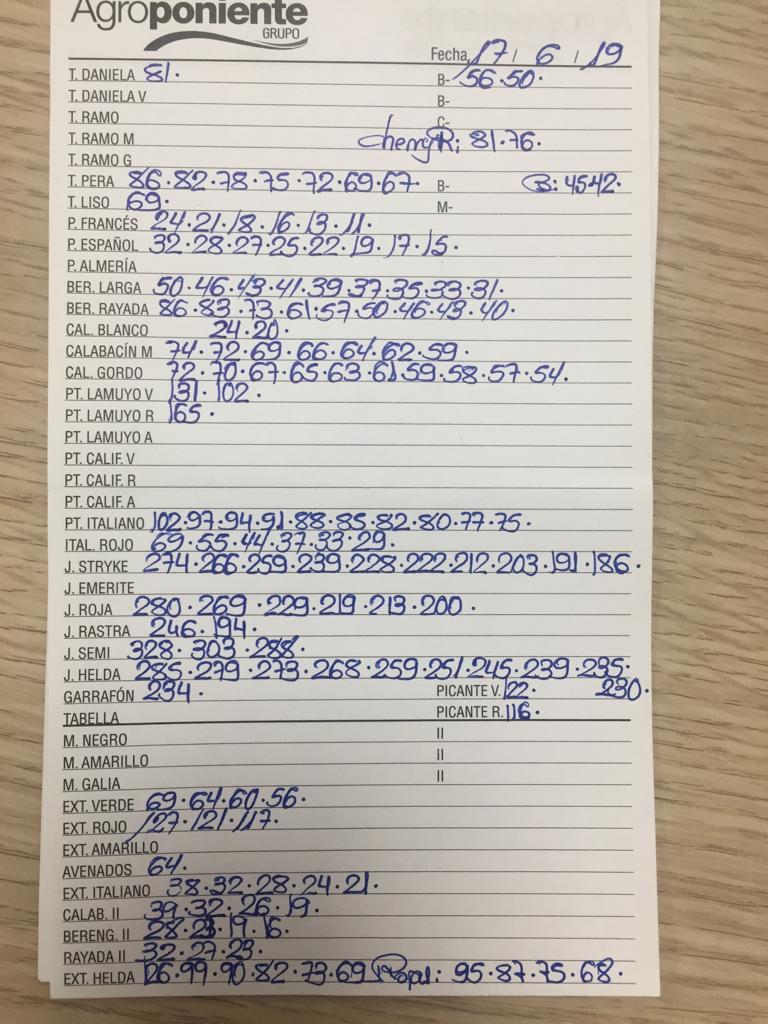 Agroponiente
GRUPO
Fecha 17 / 6 / 19
T. DANIELA 81. B- 56.50.
T. DANIELA V B-
T. RAMO C-
T. RAMO M CherryR: 81.76.
T. RAMO G
T. PERA 86.82.78.75.72.69.67. B- B: 45.42.
T. LISO 69. M-
P. FRANCÉS 24.21.18.16.13.11.
P. ESPAÑOL 32.28.27.25.22.19.17.15.
P. ALMERÍA
BER. LARGA 50.46.43.41.39.37.35.33.31.
BER. RAYADA 86.83.73.61.57.50.46.43.40.
CAL. BLANCO 24.20.
CALABACÍN M 74.72.69.66.64.62.59.
CAL. GORDO 72.70.67.65.63.61.59.58.57.54.
PT. LAMUYO V 131.102.
PT. LAMUYO R 165.
PT. LAMUYO A
PT. CALIF. V
PT. CALIF. R
PT. CALIF. A
PT. ITALIANO 102.97.94.91.88.85.82.80.77.75.
ITAL. ROJO 69.55.44.37.33.29.
J. STRYKE 274.266.259.239.228.222.212.203.191.186.
J. EMERITE
J. ROJA 280.269.229.219.213.200.
J. RASTRA 246.194.
J. SEMI 328.303.288.
J. HELDA 285.279.273.268.259.251.245.239.235.
GARRAFÓN 234. PICANTE V. 122. 230.
TABELLA PICANTE R. 116.
M. NEGRO II
M. AMARILLO II
M. GALIA II
EXT. VERDE 69.64.60.56.
EXT. ROJO 127.121.117.
EXT. AMARILLO
AVENADOS 64.
EXT. ITALIANO 38.32.28.24.21.
CALAB. II 39.32.26.19.
BERENG. II 28.23.19.16.
RAYADA II 32.27.23.
EXT. HELDA 126.99.90.82.73.69 95.87.75.68.